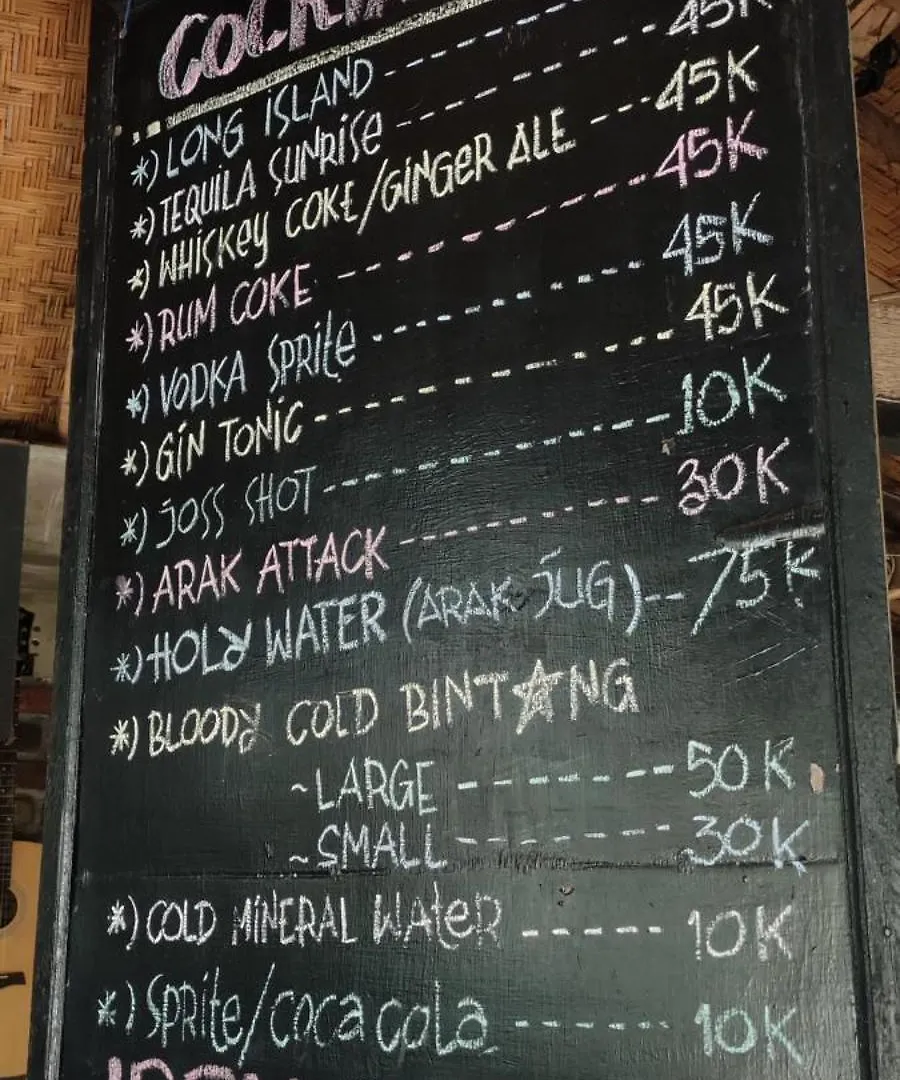 COCK
*) LONG ISLAND ------
*) TEQUILA SUNRISE ------ 45K
*) WHISKEY COKE/GINGER ALE --- 45K
*) RUM COKE ------ 45K
*) VODKA SPRITE ------ 45K
*) GIN TONIC ------ 45K
*) JOSS SHOT ------ 10K
*) ARAK ATTACK ------ 30K
*) HOLY WATER (ARAK JUG) -- 75K
*) BLOODY COLD BINT★NG
~LARGE ------ 50K
~SMALL ------ 30K
*) COLD MINERAL WATER ----- 10K
*) SPRITE/COCA COLA ----- 10K